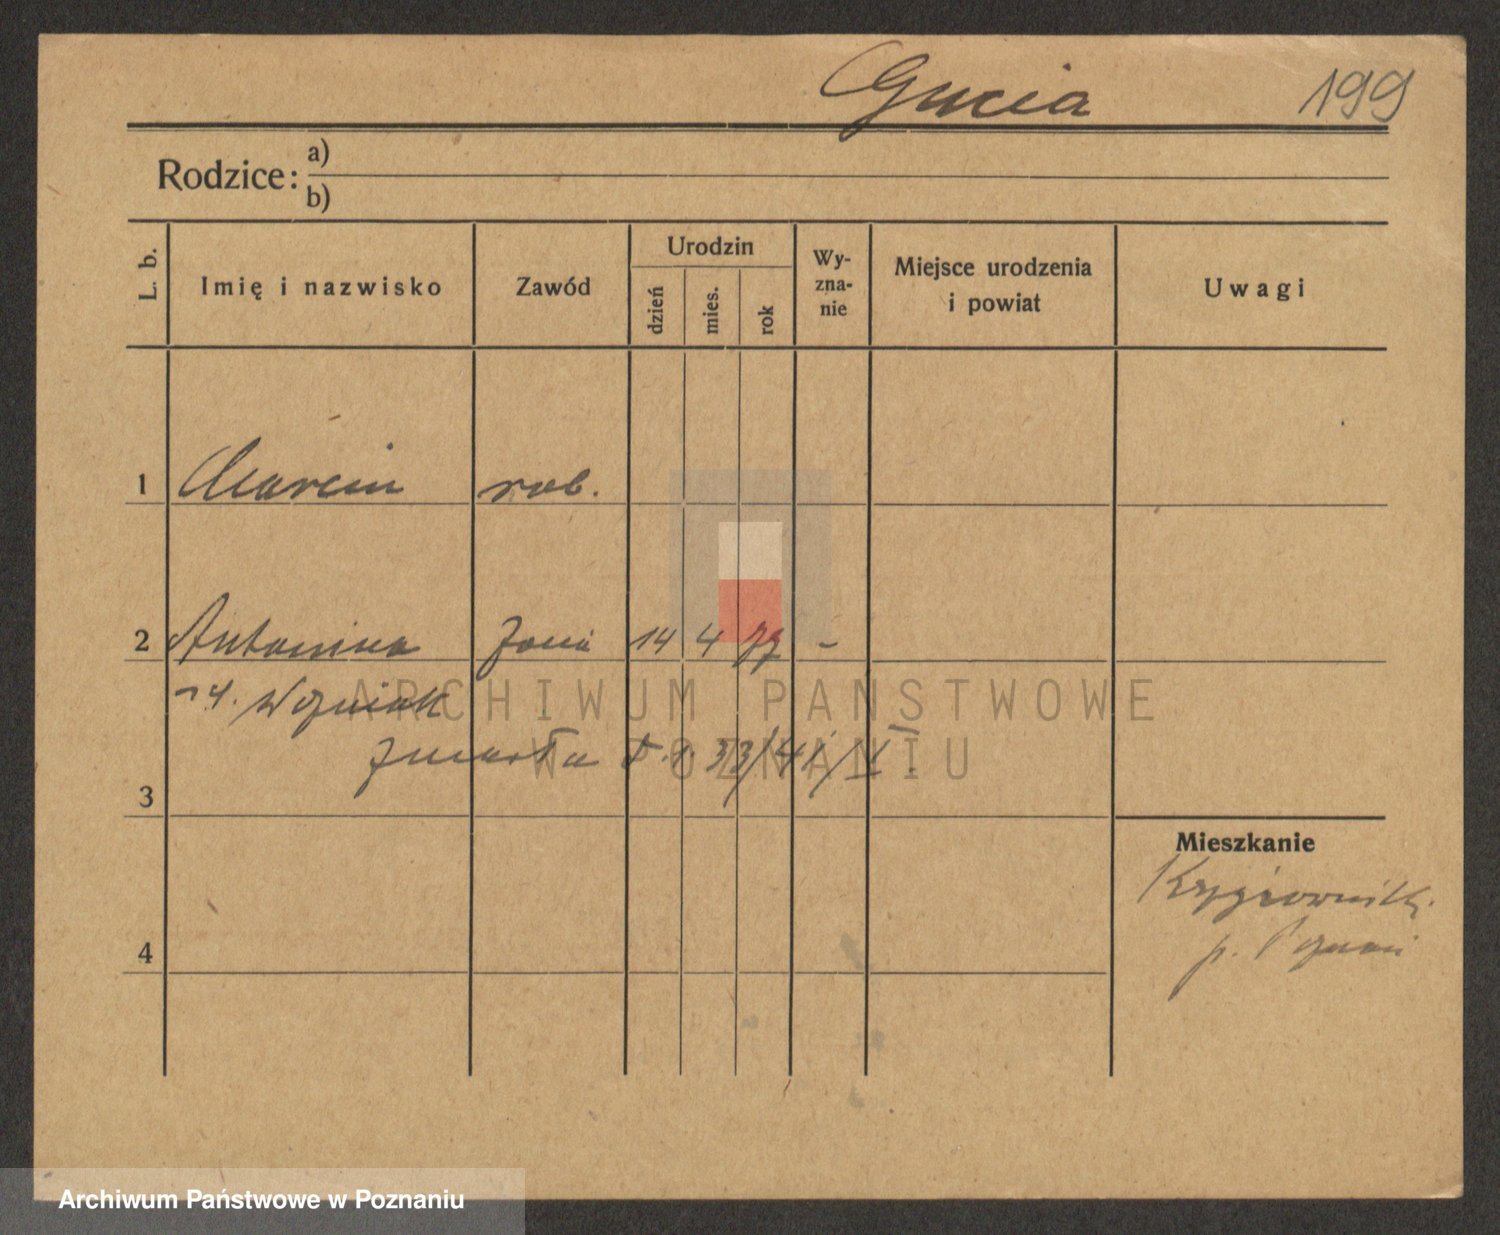 Gucia 199
Rodzice: a)
b)
L. b. Imię i nazwisko Zawód Urodzin dzień mies. rok Wy-zna-nie Miejsce urodzenia i powiat Uwagi
1 Marcin rob.
2 Antonina żona 14 4 77 -
Woźniak
zmarła 33/41/II.
3
Mieszkanie
Krzyżowniki
p. Poznań
4
ARCHIWUM PAŃSTWOWE
W POZNANIU
Archiwum Państwowe w Poznaniu